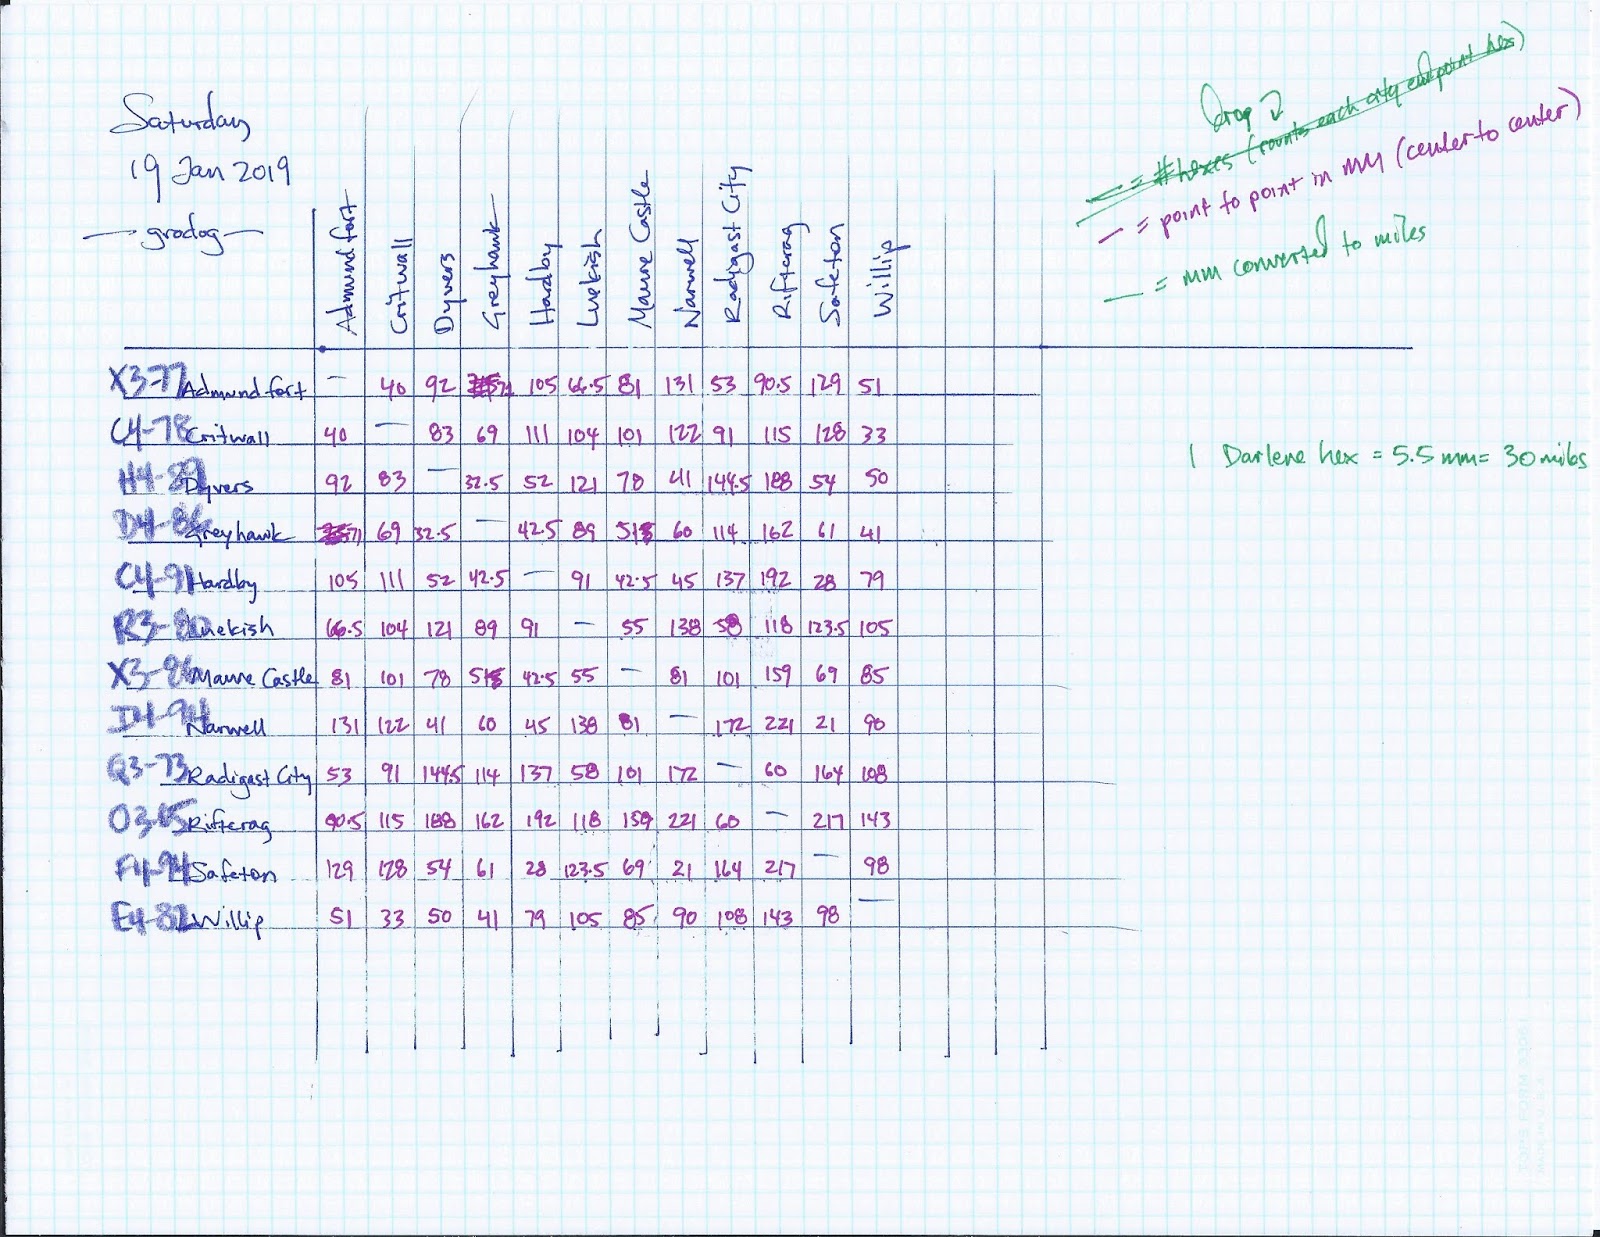 Saturday
19 Jan 2019
— grodog —
Drop ?
— = # hexes (counts each city endpoint hex)
— = point to point in mm (center to center)
— = mm converted to miles
1 Darlene hex = 5.5 mm = 30 miles
Admundfort Critwall Dyvers Greyhawk Hardby Luekish Maure Castle Narwell Radigast City Riftcrag Safeton Willip
X3-77 Admundfort — 40 92 71 105 66.5 81 131 53 90.5 129 51
C4-78 Critwall 40 — 83 69 111 104 101 122 91 115 128 33
H4- Dyvers 92 83 — 32.5 52 121 78 41 144.5 188 54 50
D4-86 Greyhawk 71 69 32.5 — 42.5 89 51 60 114 162 61 41
C4-91 Hardby 105 111 52 42.5 — 91 42.5 45 137 192 28 79
R3-80 Luekish 66.5 104 121 89 91 — 55 138 58 118 123.5 105
X3-86 Maure Castle 81 101 78 51 42.5 55 — 81 101 159 69 85
D4-94 Narwell 131 122 41 60 45 138 81 — 172 221 21 90
Q3-73 Radigast City 53 91 144.5 114 137 58 101 172 — 60 164 108
O3-65 Riftcrag 90.5 115 188 162 192 118 159 221 60 — 217 143
F4-94 Safeton 129 128 54 61 28 123.5 69 21 164 217 — 98
E4-82 Willip 51 33 50 41 79 105 85 90 108 143 98 —